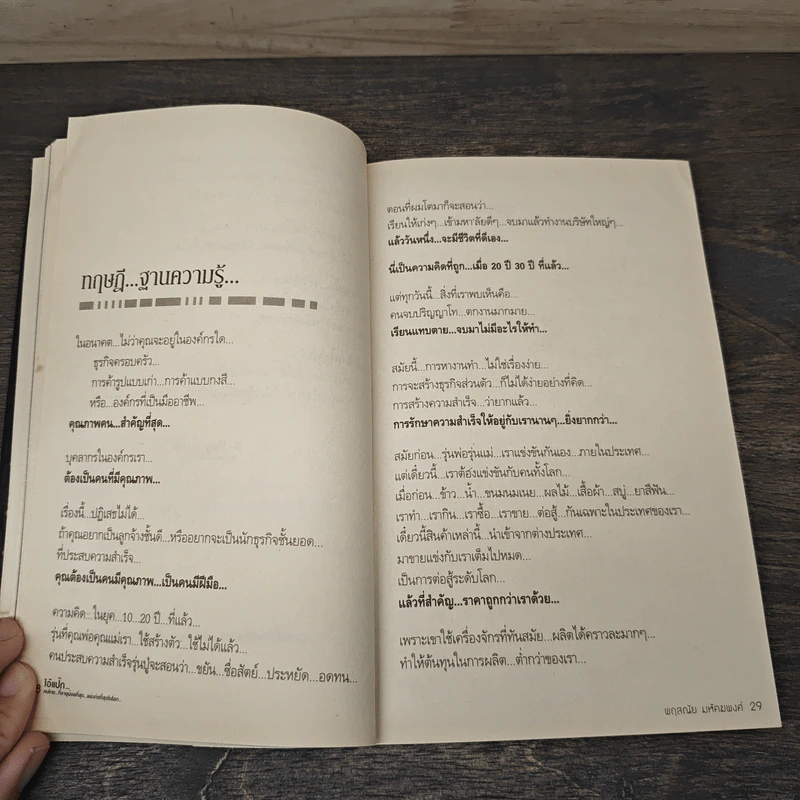 ทฤษฎี...ฐานความรู้...
ในอนาคต...ไม่ว่าคุณจะอยู่ในองค์กรใด...
ธุรกิจครอบครัว...
การค้ารูปแบบเก่า...การค้าแบบกงสี...
หรือ...องค์กรที่เป็นมืออาชีพ...
คุณภาพคน...สำคัญที่สุด...
บุคลากรในองค์กรเรา...
ต้องเป็นคนที่มีคุณภาพ...
เรื่องนี้...ปฏิเสธไม่ได้...
ถ้าคุณอยากเป็นลูกจ้างชั้นดี...หรืออยากจะเป็นนักธุรกิจชั้นยอด...
ที่ประสบความสำเร็จ...
คุณต้องเป็นคนมีคุณภาพ...เป็นคนมีฝีมือ...
ความคิด...ในยุค...10...20 ปี...ที่แล้ว...
รุ่นที่คุณพ่อคุณแม่เรา...ใช้สร้างตัว...ใช้ไม่ได้แล้ว...
คนประสบความสำเร็จรุ่นปู่จะสอนว่า...ขยัน...ซื่อสัตย์...ประหยัด...อดทน...
8 โอ้แปโก๊...
ตอนที่ผมโตมาก็จะสอนว่า...
เรียนให้เก่งๆ...เข้ามหา'ลัยดีๆ...จบมาแล้วทำงานบริษัทใหญ่ๆ...
แล้ววันหนึ่ง...จะมีชีวิตที่ดีเอง...
นี่เป็นความคิดที่ถูก...เมื่อ 20 ปี 30 ปี ที่แล้ว...
แต่ทุกวันนี้...สิ่งที่เราพบเห็นคือ...
คนจบปริญญาโท...ตกงานมากมาย...
เรียนแทบตาย...จบมาไม่มีอะไรให้ทำ...
สมัยนี้...การหางานทำ...ไม่ใช่เรื่องง่าย...
การจะสร้างธุรกิจส่วนตัว...ก็ไม่ได้ง่ายอย่างที่คิด...
การสร้างความสำเร็จ...ว่ายากแล้ว...
การรักษาความสำเร็จให้อยู่กับเรานานๆ...ยิ่งยากกว่า...
สมัยก่อน...รุ่นพ่อรุ่นแม่...เราแข่งขันกันเอง...ภายในประเทศ...
แต่เดี๋ยวนี้...เราต้องแข่งขันกับคนทั้งโลก...
เมื่อก่อน...ข้าว...น้ำ...ขนมนมเนย...ผลไม้...เสื้อผ้า...สบู่...ยาสีฟัน...
เราทำ...เรากิน...เราซื้อ...เราขาย...ต่อสู้...กันเฉพาะในประเทศของเรา...
เดี๋ยวนี้สินค้าเหล่านี้...นำเข้าจากต่างประเทศ...
มาขายแข่งกับเราเต็มไปหมด...
เป็นการต่อสู้ระดับโลก...
แล้วที่สำคัญ...ราคาถูกกว่าเราด้วย...
เพราะเขาใช้เครื่องจักรที่ทันสมัย...ผลิตได้คราวละมากๆ...
ทำให้ต้นทุนในการผลิต...ต่ำกว่าของเรา...
พฤสณัย มหัคฆพงศ์ 29